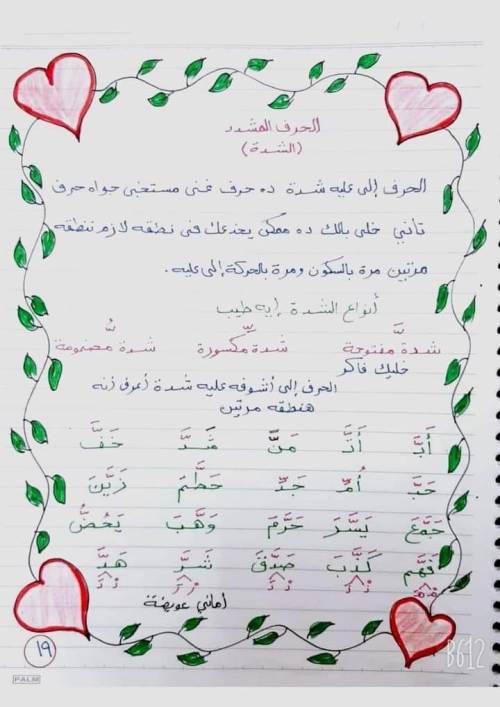 الحرف المشدد
(الشدة)
الحرف إلى عليه شدة ده حرف غنى مستخبى جواه حرف
تاني خلى بالك ده ممكن يخدعك فى نطقه لازم تنطقه
مرتين مرة بالسكون ومرة بالحركة إلى عليه.
أنواع الشدة إيه طيب
شدة مفتوحة شدة مكسورة شدة مضمومة
خليك فاكر
الحرف إلى أشوفه عليه شدة أعرف أنه
هنطقه مرتين
أَبَّ أَنَّ مَنَّ شَدَّ خَفَّ
حَبَّ أُمّ جَدّ حَطَّمَ زَيَّنَ
جَمَّعَ يَسَّرَ حَرَّمَ وَهَّبَ يَحُضُّ
فَهَّم كَذَّبَ صَدَّقَ شَرَّ هَدَّ
أماني عويضة
١٩
B612
PALM